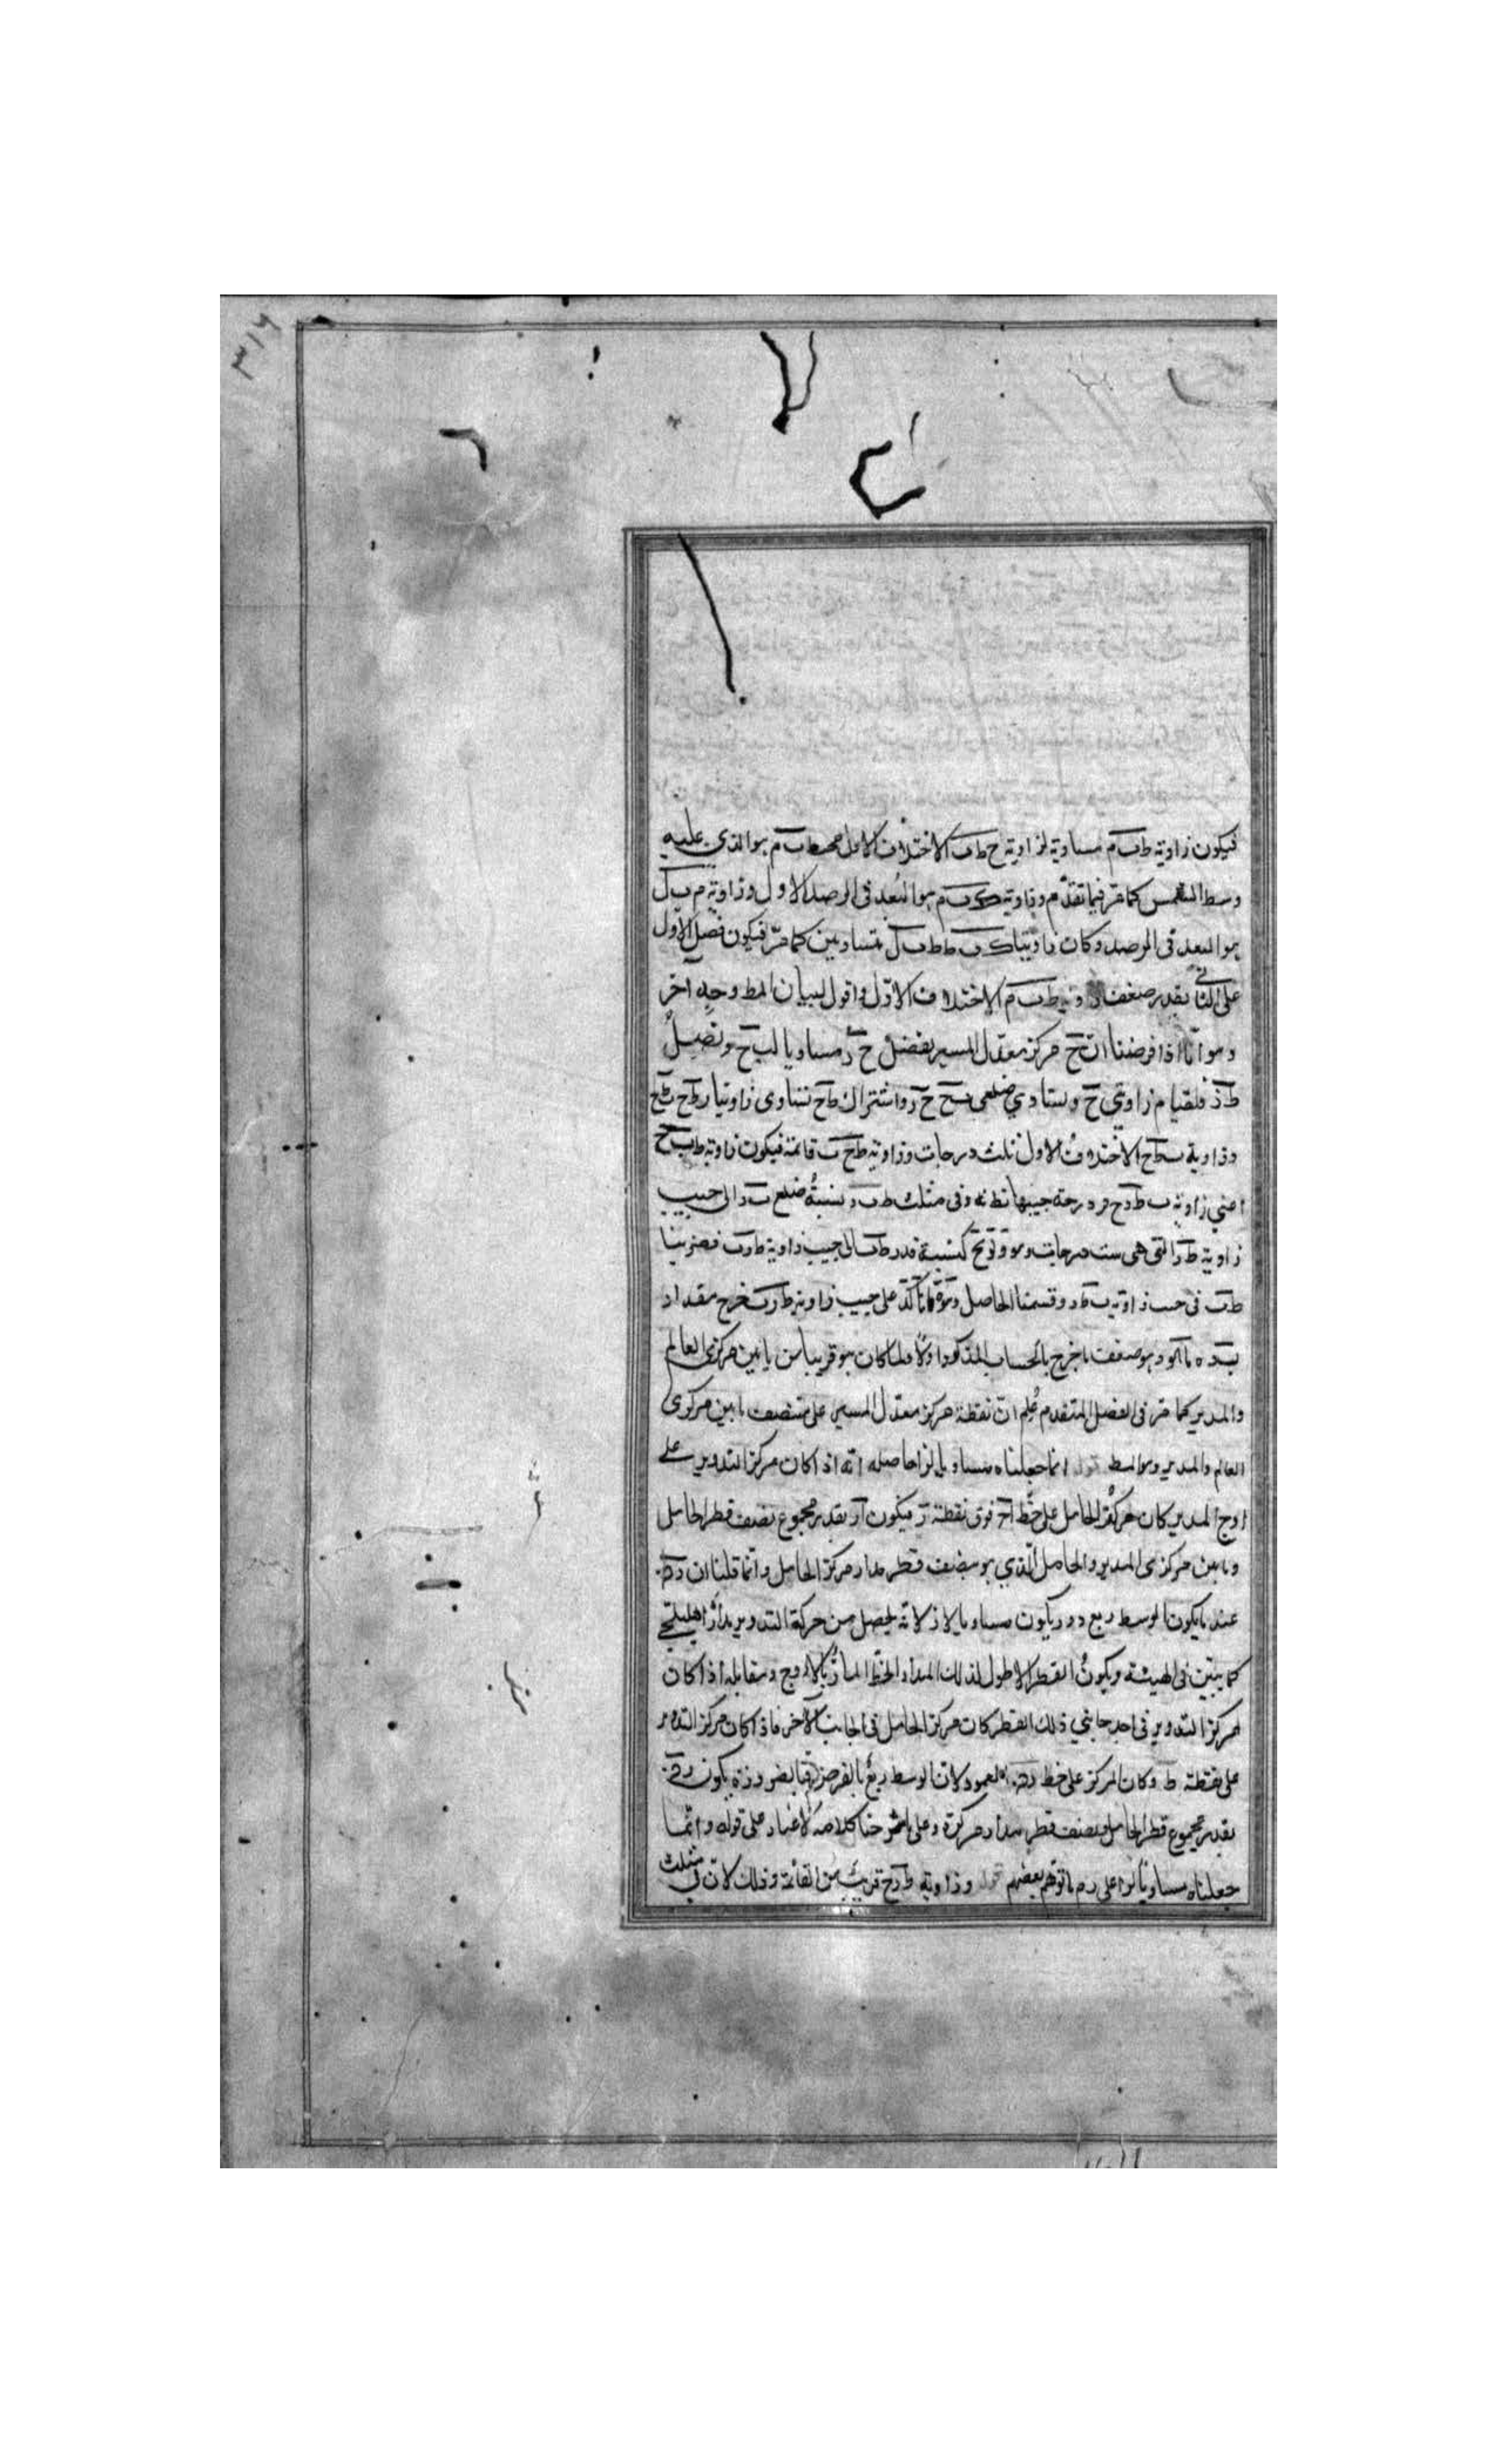 ٣١٦
فيكون زاوية ط ب م مساوية لزاوية ح ط ب الاختلاف الاول محيط ب م هو الذي عليه
وسط الشمس كما مر فيما تقدم وزاوية ك ب م هو البعد في الرصد الاول وزاوية م ب ل
هو البعد في الرصد وكان زاويتا ك ب ط ط ب ل متساويين كما مر فيكون فضل الاول
على الثاني بقدر ضعف زاوية ط ب م الاختلاف الاول واقول لبيان المط وجه آخر
وهو انا اذا فرضنا ان ح مركز معدل المسير بفضل ح ر مساويا لب ح ونصل
ط ر فلقيام زاويتي ح وتساوي ضلعي ب ح ح ر واشتراك ط ح تتساوى زاويتا ر ط ح ب ط ح
وزاوية ب ط ح الاختلاف الاول ثلث درجات وزاوية ط ح ب قائمة فيكون زاوية ط ب ح
اعني زاوية ب ط ح فز درجة جيبها نط نه وفي مثلث ط ب ر نسبة ضلع ب ر الى جيب
زاوية ط ر التي هي ست درجات وهو كنسبة قدر ط ب الى جيب زاوية ط ر ب فضربنا
ط ب في جيب زاوية ب ط ر وقسمنا الحاصل وهو على جيب زاوية ط ر ب فخرج مقدار
ب ر ه وهو ضعف ما خرج بالحساب المذكور اولا ولما كان هو قريبا من ما بين مركزي العالم
والمدير كما مر في الفصل المتقدم علم ان نقطة مركز معدل المسير على منتصف ما بين مركزي
العالم والمدير وهو المط قوله انما جعلناه مساويا لزا حاصله انه اذا كان مركز التدوير على
اوج المدير كان مركز الحامل على خط ا ح فوق نقطة ر فيكون ا ر بقدر مجموع نصف قطر الحامل
وما بين مركزي المدير والحامل الذي هو نصف قطر مدار مركز الحامل وانما قلنا ان
عند ما يكون الوسط ربع دور يكون مساويا لا ز لانه يحصل من حركة التدوير مدار اهليلجي
كما يبين في الهيئة ويكون القطر الاطول لذلك المدار الخط المار بالاوج ومقابله اذا كان
مركز التدوير في احد جانبي ذلك القطر كان مركز الحامل في الجانب الآخر فاذا كان مركز التدوير
على نقطة ط وكان المركز على خط العمود لان الوسط ربع بالفرض فبالضرورة يكون
بقدر مجموع قطر الحامل ونصف قطر مدار مركزه وعلى ما شرحنا كلامه لا غبار على قوله وانما
جعلناه مساويا لزا على رد ما توهم بعضهم قوله وزاوية ط ر ح قريب من القائمة وذلك لان في مثلث